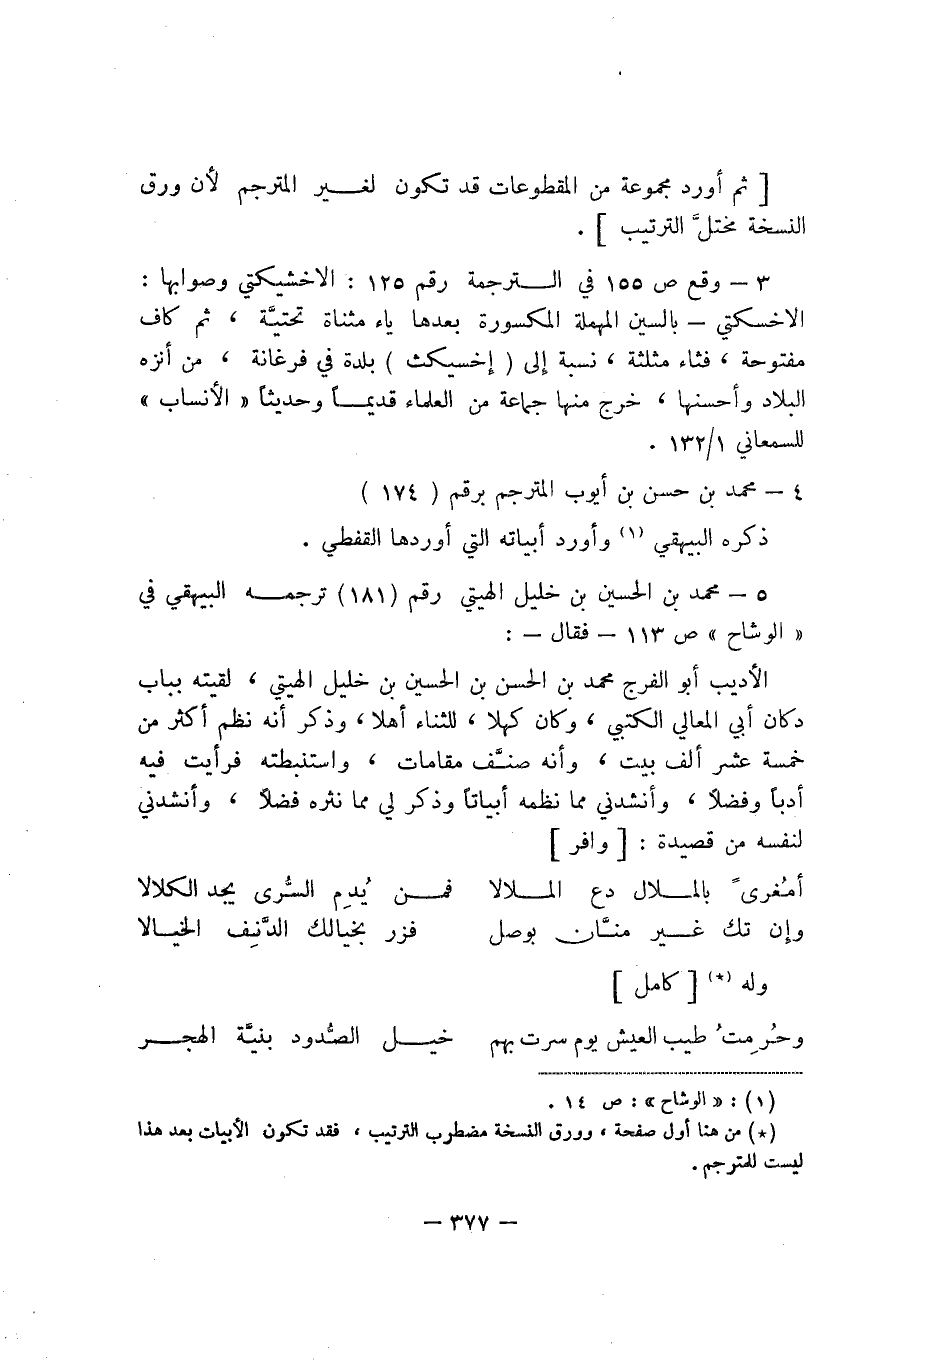 [ ثم أورد مجموعة من المقطوعات قد تكون لغير المترجم لأن ورق
النسخة مختلّ الترتيب ] .
٣ – وقع ص ١٥٥ في الترجمة رقم ١٢٥ : الاخشيكتي وصوابها :
الاخسكتي – بالسين المهملة المكسورة بعدها ياء مثناة تحتيّة ، ثم كاف
مفتوحة ، فثاء مثلثة ، نسبة إلى ( إخسيكث ) بلدة في فرغانة ، من أنزه
البلاد وأحسنها ، خرج منها جماعة من العلماء قديماً وحديثاً « الأنساب »
للسمعاني ١٣٢/١ .
٤ – محمد بن حسن بن أيوب المترجم برقم ( ١٧٤ )
ذكره البيهقي (١) وأورد أبياته التي أوردها القفطي .
٥ – محمد بن الحسين بن خليل الهيتي رقم (١٨١) ترجمه البيهقي في
« الوشاح » ص ١١٣ – فقال – :
الأديب أبو الفرج محمد بن الحسن بن الحسين بن خليل الهيتي ، لقيته بباب
دكان أبي المعالي الكتبي ، وكان كهلا ، للثناء أهلا ، وذكر أنه نظم أكثر من
خمسة عشر ألف بيت ، وأنه صنّف مقامات ، واستنبطته فرأيت فيه
أدباً وفضلاً ، وأنشدني مما نظمه أبياتاً وذكر لي مما نثره فضلاً ، وأنشدني
لنفسه من قصيدة : [ وافر ]
أمُغرىً بالملال دع الملالا فمن يُدِم السُّرى يجد الكلالا
وإن تك غير منّان بوصل فزر بخيالك الدَّنِف الخيالا
وله (*) [ كامل ]
وحُرِمتُ طيب العيش يوم سرت بهم خيل الصُّدود بنيَّة الهجر
(١) : « الوشاح » : ص ١٤ .
(*) من هنا أول صفحة ، وورق النسخة مضطرب الترتيب ، فقد تكون الأبيات بعد هذا
ليست للمترجم .
– ٣٧٧ –